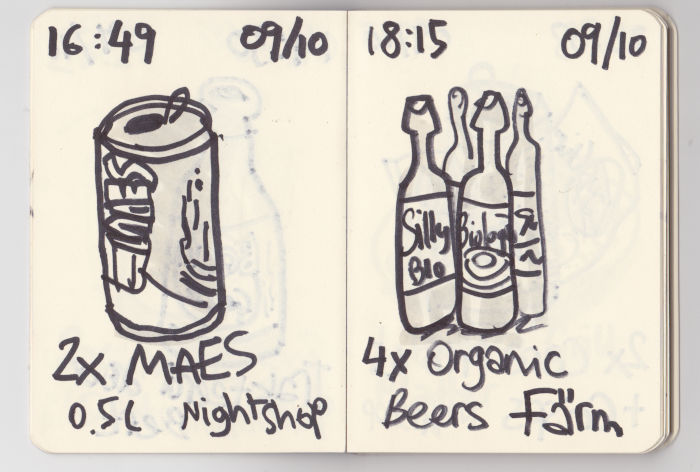 16:49 09/10
MAES
2x MAES
0.5L Nightshop
18:15 09/10
Silly
Bio
Biolog
4x Organic
Beers Färm